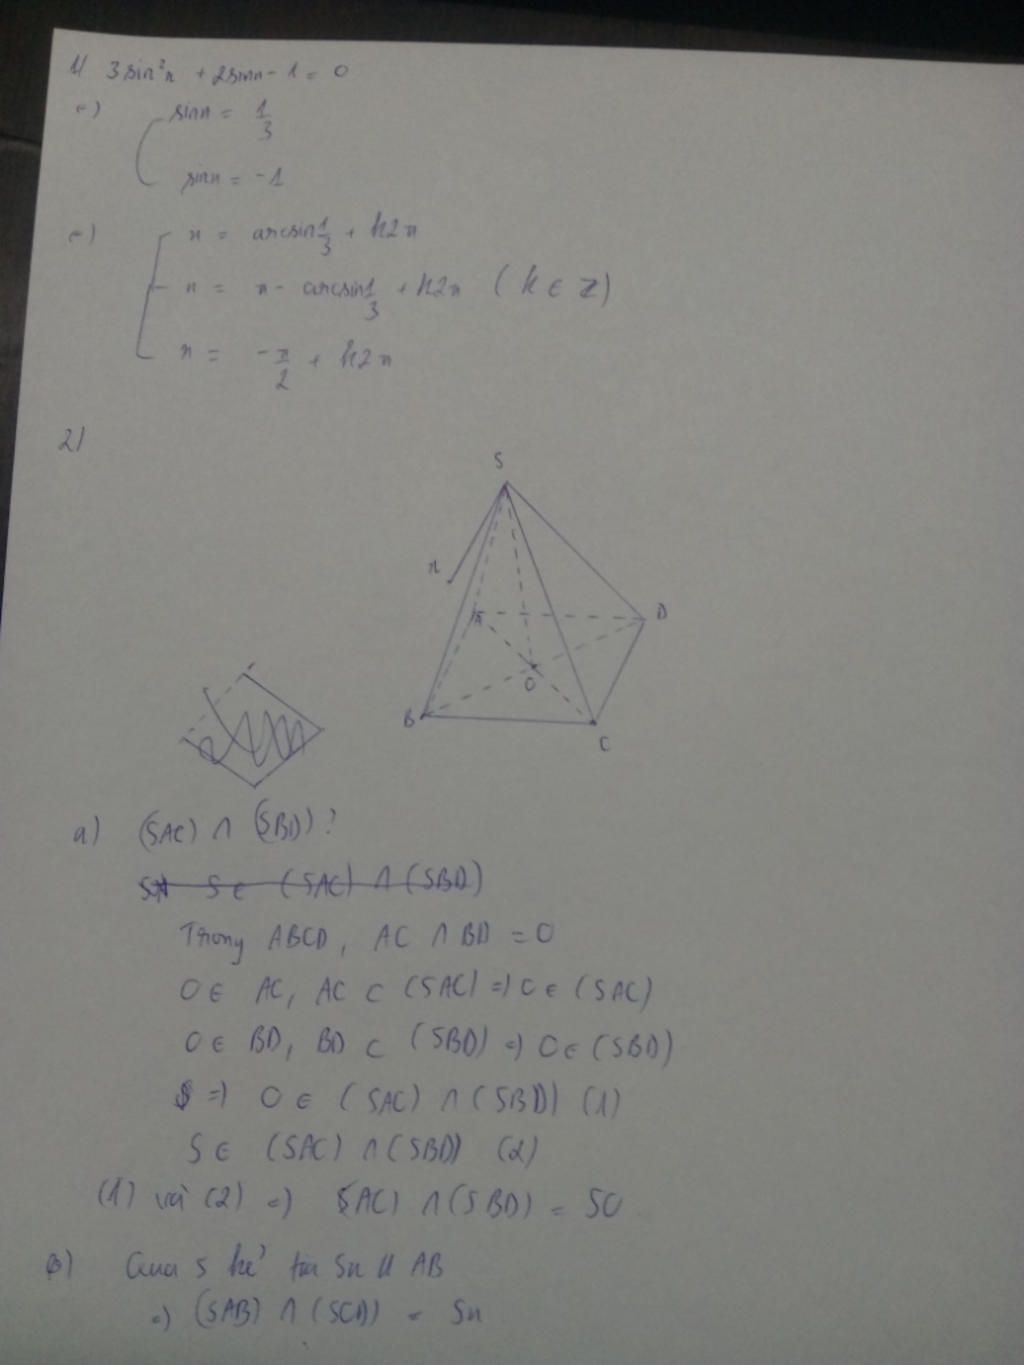 1) 3sin²x + 2sinx - 1 = 0
(=) sinx = 1/3
sinx = -1
(=) x = arcsin 1/3 + k2π
x = π - arcsin 1/3 + k2π (k ∈ Z)
x = -π/2 + k2π
2)
S
x
A
D
O
B
C
a) (SAC) ∩ (SBD)?
S ∈ (SAC) ∩ (SBD)
Trong ABCD, AC ∩ BD = O
O ∈ AC, AC ⊂ (SAC) =) O ∈ (SAC)
O ∈ BD, BD ⊂ (SBD) =) O ∈ (SBD)
=) O ∈ (SAC) ∩ (SBD) (1)
S ∈ (SAC) ∩ (SBD) (2)
(1) và (2) =) (SAC) ∩ (SBD) = SO
b) Qua S kẻ tia Sx // AB
=) (SAB) ∩ (SCD) = Sx